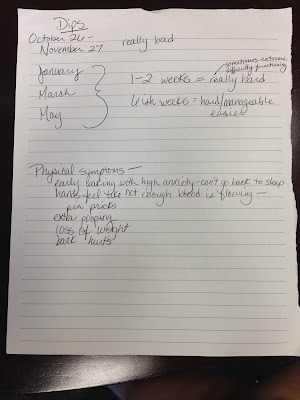 Dips
October 26 -
November 27 really bad
sometimes extreme
difficulty functioning
January
1-2 weeks = really hard
March
6ish weeks = hard/manageable
easier
May
Physical symptoms -
early waking with high anxiety - can't go back to sleep
hands feel like not enough blood is flowing -
pin pricks
extra pooping
loss of weight
back hurts